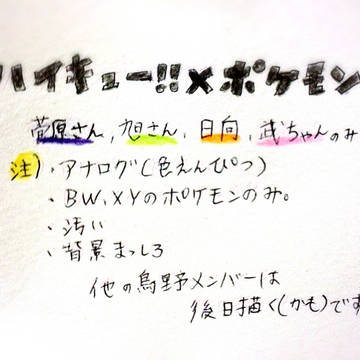 ハイキュー!!×ポケモン
菅原さん,旭さん,日向,武ちゃんのみ
注)・アナログ(色えんぴつ)
・BW、XYのポケモンのみ。
・汚い
・背景まっしろ
他の烏野メンバーは
後日描く(かも)です